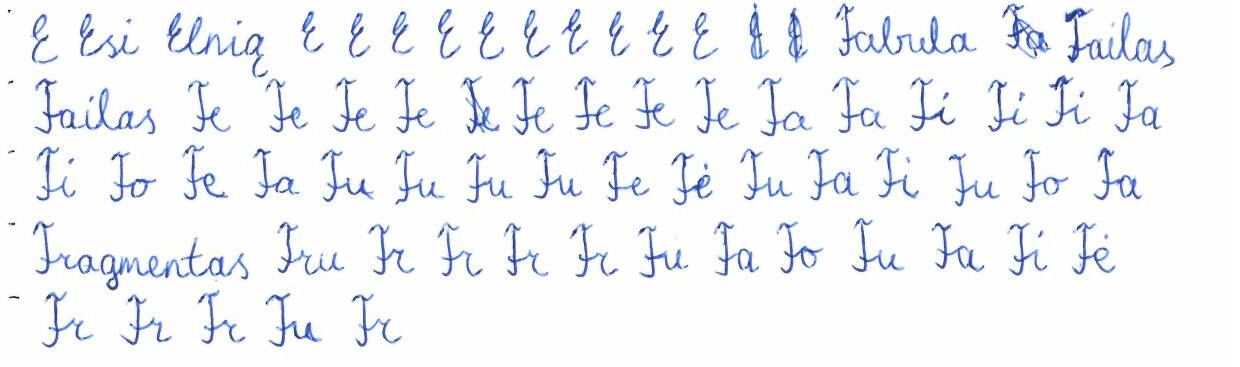 E Esi Elnią E E E E E E E E E E Fabula Failas
Failas Fe Fe Fe Fe Fe Fe Fe Fe Fa Fa Fi Fi Fi Fa
Fi Fo Fe Fa Fu Fu Fu Fu Fe Fė Fu Fa Fi Fu Fo Fa
Fragmentas Fru Fr Fr Fr Fr Fu Fa Fo Fu Fa Fi Fė
Fr Fr Fr Fu Fr